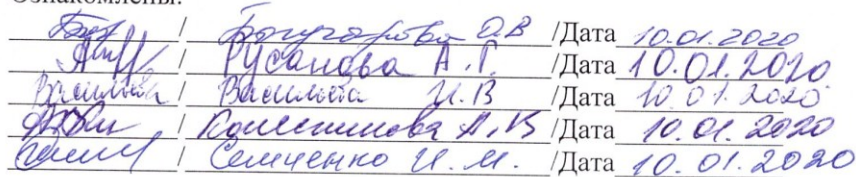 Ознакомлены:
/ Богучарова О.В /Дата 10.01.2020
/ Русанова А.Г. /Дата 10.01.2020
Васильева / Васильева И.В /Дата 10.01.2020
/ Колесникова А.В /Дата 10.01.2020
/ Семченко И.М. /Дата 10.01.2020